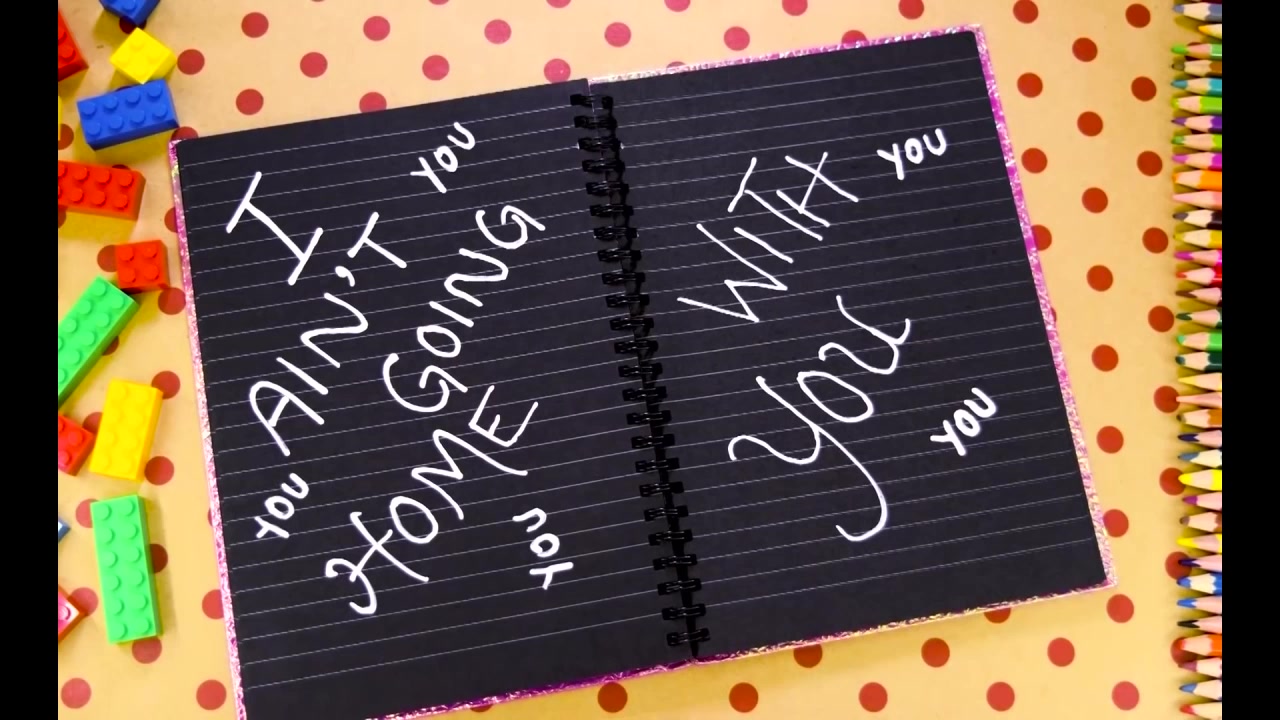 YOU
I
AIN'T
GOING
HOME
YOU
YOU
WITH
YOU
YOU
YOU